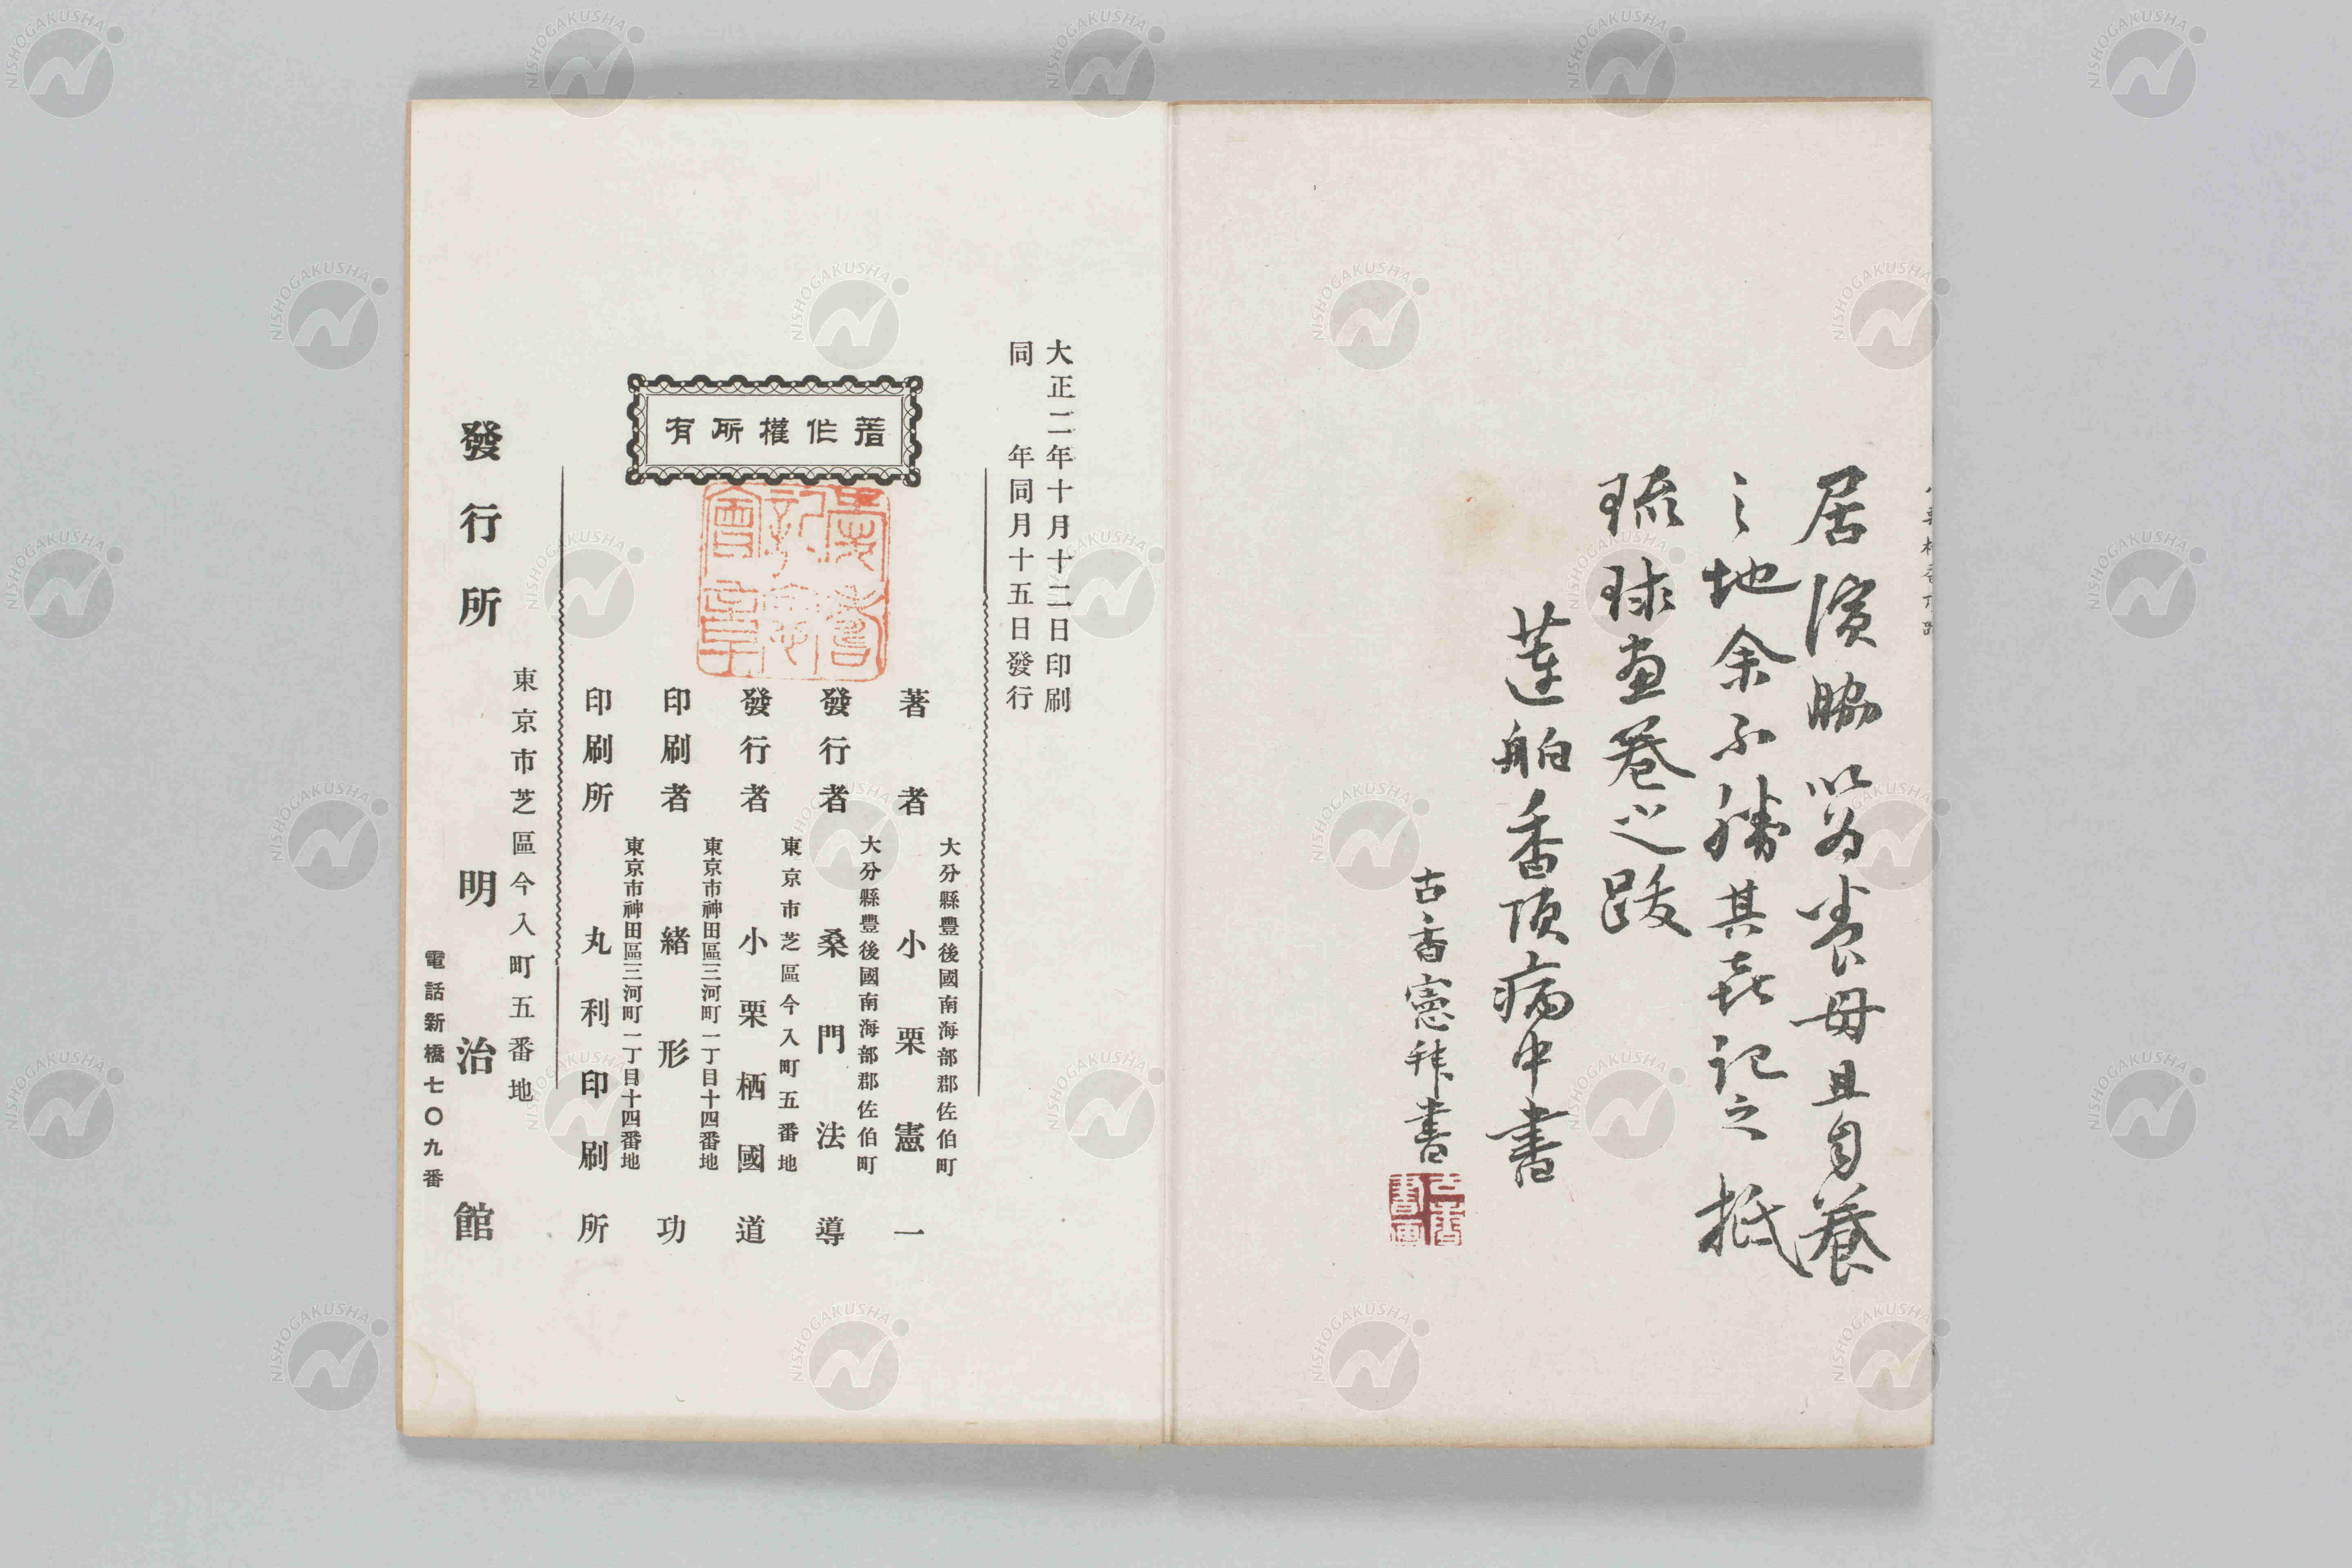 居濱脇以為養母且自養
之地余不勝其喜記之抵
琉球畫卷之跋
蓮舶香頂病中書
古香憲拜書
大正二年十月十二日印刷
同年同月十五日發行
著作權所有
著者
大分縣豐後國南海部郡佐伯町
小栗憲一
發行者
大分縣豐後國南海部郡佐伯町
桑門法導
發行者
東京市芝區今入町五番地
小栗栖國道
印刷者
東京市神田區三河町一丁目十四番地
緒形功
印刷所
東京市神田區三河町一丁目十四番地
丸利印刷所
發行所
東京市芝區今入町五番地
明治館
電話新橋七〇九番
NISHOGAKUSHA